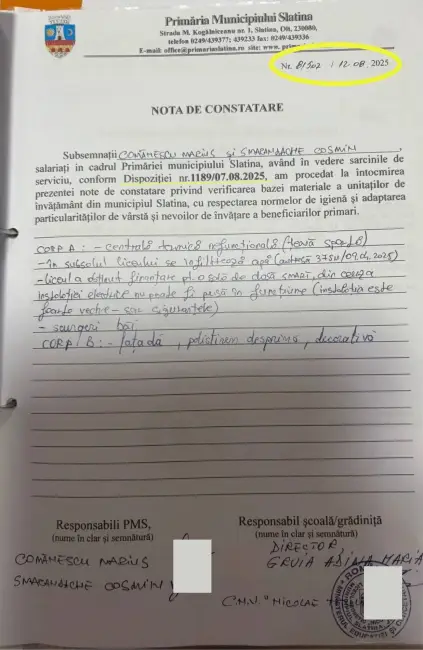 Primăria Municipiului Slatina
Strada M. Kogălniceanu nr. 1, Slatina, Olt, 230080,
telefon 0249/439377; 439233 fax: 0249/439336
E-mail: office@primariaslatina.ro site: www.
Nr. 81502 / 12.08. 2025
NOTA DE CONSTATARE
Subsemnații COMĂNESCU MARIUS ȘI SMARANDACHE COSMIN,
salariați în cadrul Primăriei municipiului Slatina, având în vedere sarcinile de
serviciu, conform Dispoziției nr.1189/07.08.2025, am procedat la întocmirea
prezentei note de constatare privind verificarea bazei materiale a unitaților de
învățământ din municipiul Slatina, cu respectarea normelor de igienă și adaptarea
particularităților de vârstă și nevoilor de învățare a beneficiarilor primari.
CORP A: - centrală termică nefuncțională (țeavă spartă)
- În subsolul liceului se infiltrează apă (adresă /09.04.2025)
- Liceul a obținut finanțare pt. o sală de clasă SMART, din cauza
instalației electrice nu poate fi pusă în funcțiune (instalația este
foarte veche - sar siguranțele)
- scurgeri băi
CORP B: - fațadă, polistiren desprins, decorativă
Responsabili PMS,
(nume în clar și semnătură)
COMĂNESCU MARIUS
SMARANDACHE COSMIN
Responsabil școală/grădiniță
(nume în clar și semnătură)
DIRECTOR,
GRUIA ADINA MARIA
C.N.V. "NICOLAE